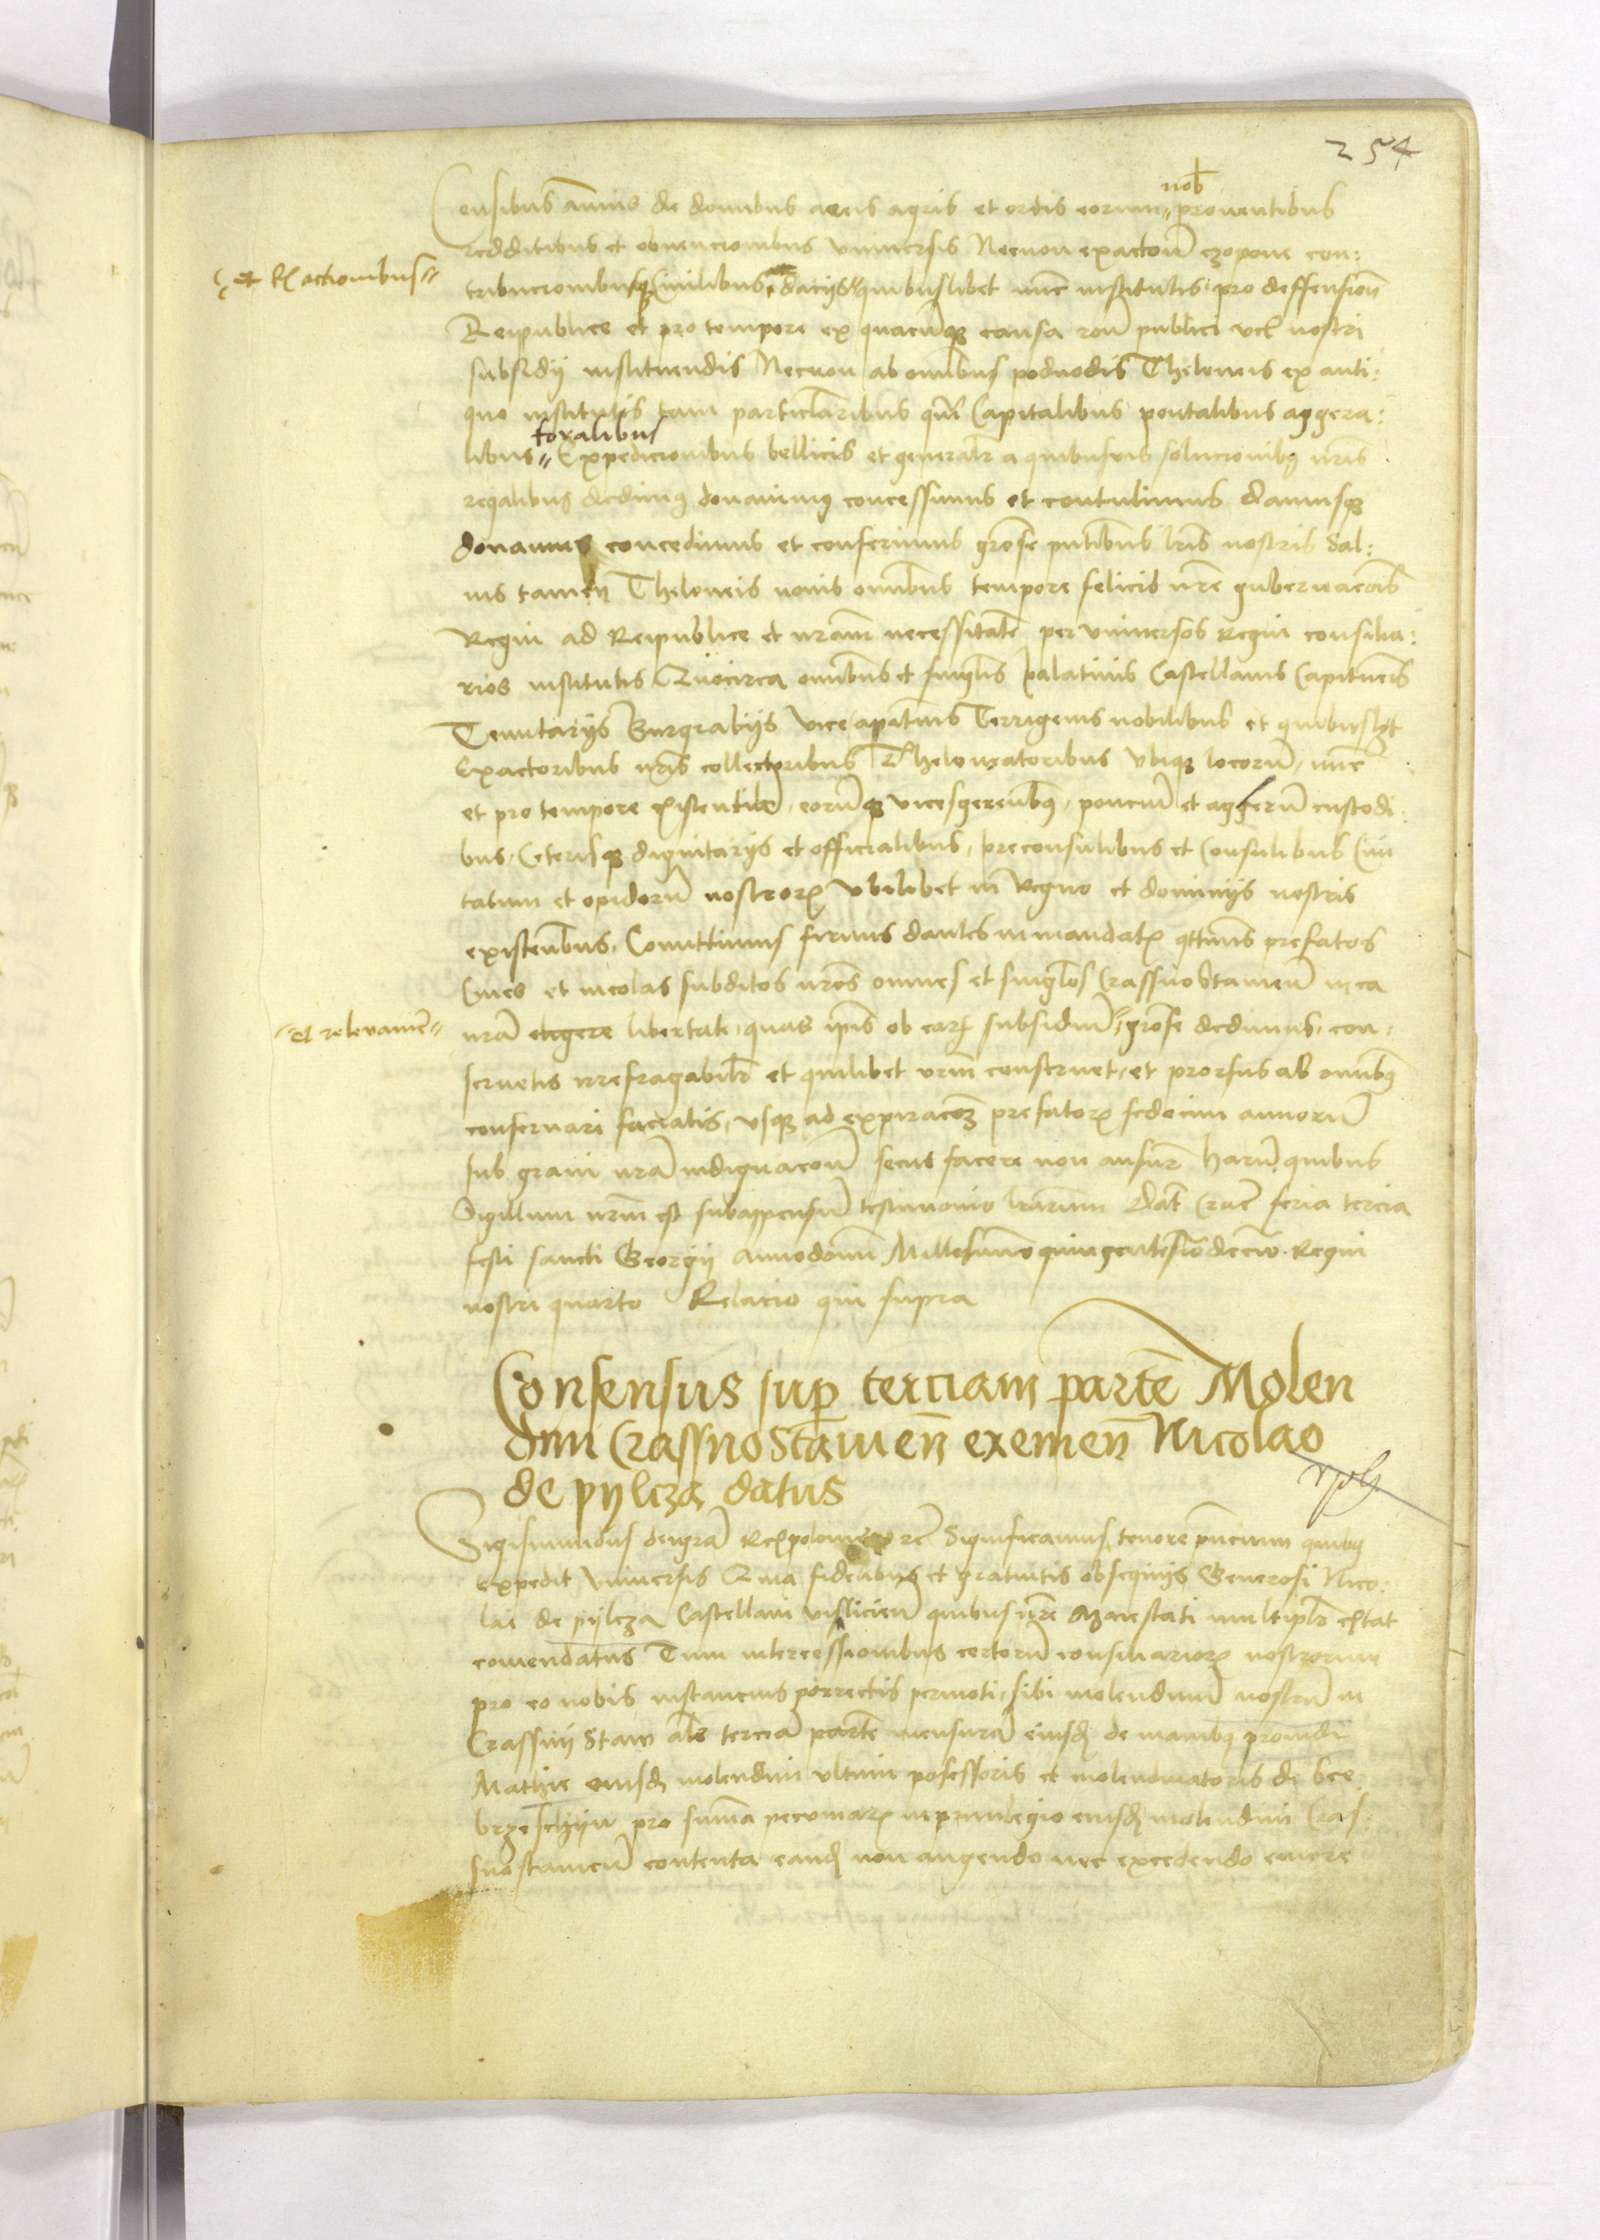 254
nob̄
Censibus ānnis de domibus areis agris et ortis eorum prouentibus
redditibus et obuencionibus vniuersis Necnon exactoū czopove con:
et exactionibus
tribucionibusq̨ ciuilibus dacijs quibuslibet nunc institutis pro deffensioñ
Reipublice et pro tempore ex quacūq̨ causa roñ publici vel nostri
subsidij instituendis Necnon ab omībus podvodis Theloneis ex anti:
quo institutis tam particlaribus qm̄ Capitalibus pontalibus aggera:
foralibus
libus Expedicionibus bellicis et generalr̄ a quibusuis solucionibꝫ nr̄is
regalibus dedimꝰ donauimꝰ concessimus et contulimus damusq̨
donamus concedimus et conferimus grōse pn̄tibus lr̄is nostris Sal:
uis tamen Theloneis nouis omībus tempore felicis nr̄e gubernacōis
Regni ad Reipublice et nr̄am necessitatē per vniuersos Regni consilia:
rios institutis Quocirca omībus et singlis palatinis Castellanis Capitneis
Tenutarijs Burgrabijs vicecapitneis Terrigenis nobilibus et quibuslꝫt
Exactoribus nr̄is collectoribus Theloneatoribus vbiq̨ locorū nunc
et pro tempore existentibꝫ eorūq̨ vicesgerentibꝫ ponciū et aggerū custodi:
bus Ceterisq̨ dignitarijs et officialibus preconsulibus et Consulibus Ciui
tatum et opidorū nostrorꝫ vbilibet in Regno et dominijs nostris
existentibus Comittimus firmis dantes in mandatꝫ qtinus prefatos
Ciues et incolas subditos nr̄os omnes et singlos Crassnostawieñ in ea
et releuamē
nr̄a libertate quas ip̄is ob earꝫ subsidiū grōse dedimus con:
seruetis irrefragabilr̄ et quilibet vr̄m conseruet et prorsus ab omībꝫ
conseruari faciatis vsq̨ ad expiracōꝫ prefatorꝫ sedecim annorū
sub graui nr̄a indignacoñ secus facere non ausur̄ Harū quibus
Sigillum nr̄m est subappensū testimonio lr̄arum Dat̄ Crac̄ feria tercia
festi sancti Georgij Annodomī Millesimo quingentesimo decimo Regni
nostri quarto Relacio qui supra
Consensus sup̄ terciam partē Molen
dini Crassnostawieñ exemeñ Nicolao
de pylcza datus
Sigismundus deigrā Rex polonie rc̄ Significamus tenore pn̄cium quibꝫ
expedit vniuersis Quia fidelibus et gratuitis obsequijs Generosi Nico:
lai de pylcza Castellani vislicieñ quibus nr̄e Maiestati multiplr̄ extat
comendatus Tum intercessionibus certorū consiliariorꝫ nostrorum
pro eo nobis instancius porrectis permoti sibi molendinū nostrū in
Crassnij Staw als̄ terciā partē mensurā eiusdꝫ de manibꝫ prouidi
Mathie eiusdꝫ molendini vltimi possessoris et molendinatoris de Sce
brzeschyn pro summa pecuniarꝫ in priuilegio eiusdꝫ molendini Cras:
snostawieñ contenta eandꝫ non augendo nec excedendo emere